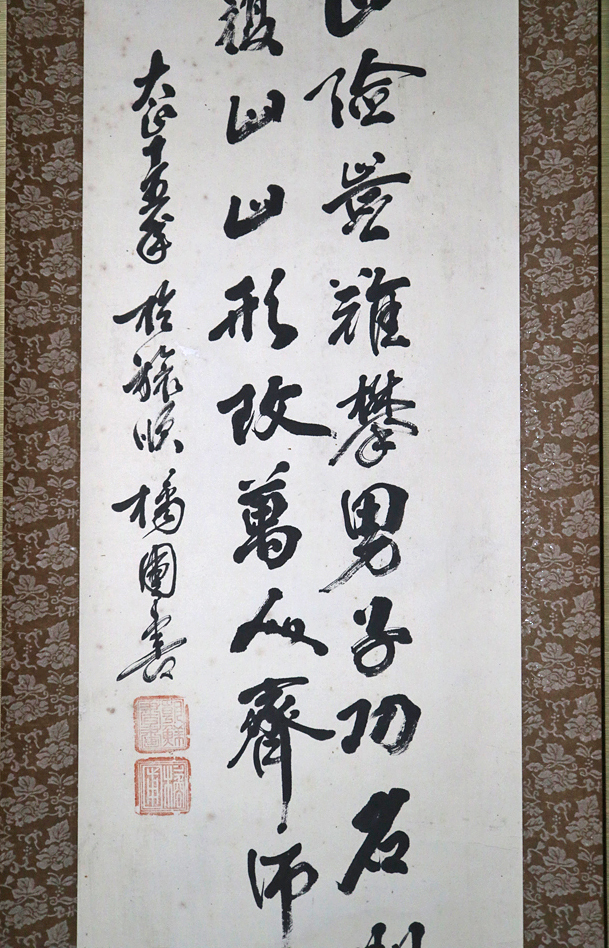 山險豈難攀男子功名
覆山山形改萬人齊仰
大正十五年於旅順橘圃書
橘圃